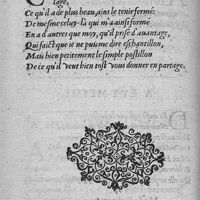 lage,
Ce qu'il a de plus beau, ains le tenir fermé:
De mesme celuy-là qui m'a ainsi formé
En a d'autres que moy, qu'il prise d'auantage,
Qui faict que ie ne puis me dire eschantillon,
Mais bien petitement le simple postillon
De ce qu'il veut bien tost vous donner en partage.